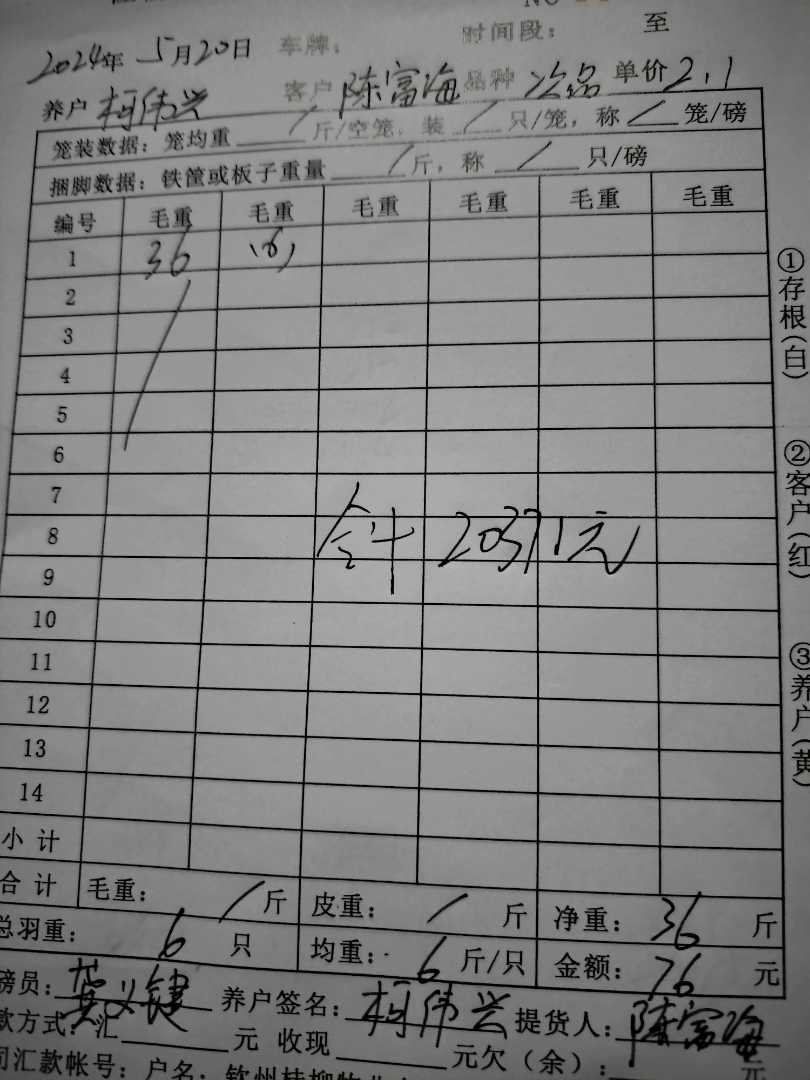 NO
2024年 5月20日 车牌： 时间段： 至
养户 柯伟兴 客户 陈富海 品种 次品 单价 2.1
笼装数据：笼均重 / 斤/空笼，装 / 只/笼，称 / 笼/磅
捆脚数据：铁筐或板子重量 / 斤，称 / 只/磅
编号 毛重 毛重 毛重 毛重 毛重 毛重
1 36 (6)
2
3
4
5
6
7
8 合计 20371元
9
10
11
12
13
14
小计
合计 毛重： / 斤 皮重： / 斤 净重： 36 斤
总羽重： 6 只 均重： 6 斤/只 金额： 76 元
磅员： 黄义键 养户签名： 柯伟兴 提货人： 陈富海
款方式：汇 元 收现 元欠（余）： 元
司汇款帐号：户名：钦州桂柳牧业
①存根（白）
②客户（红）
③养户（黄）